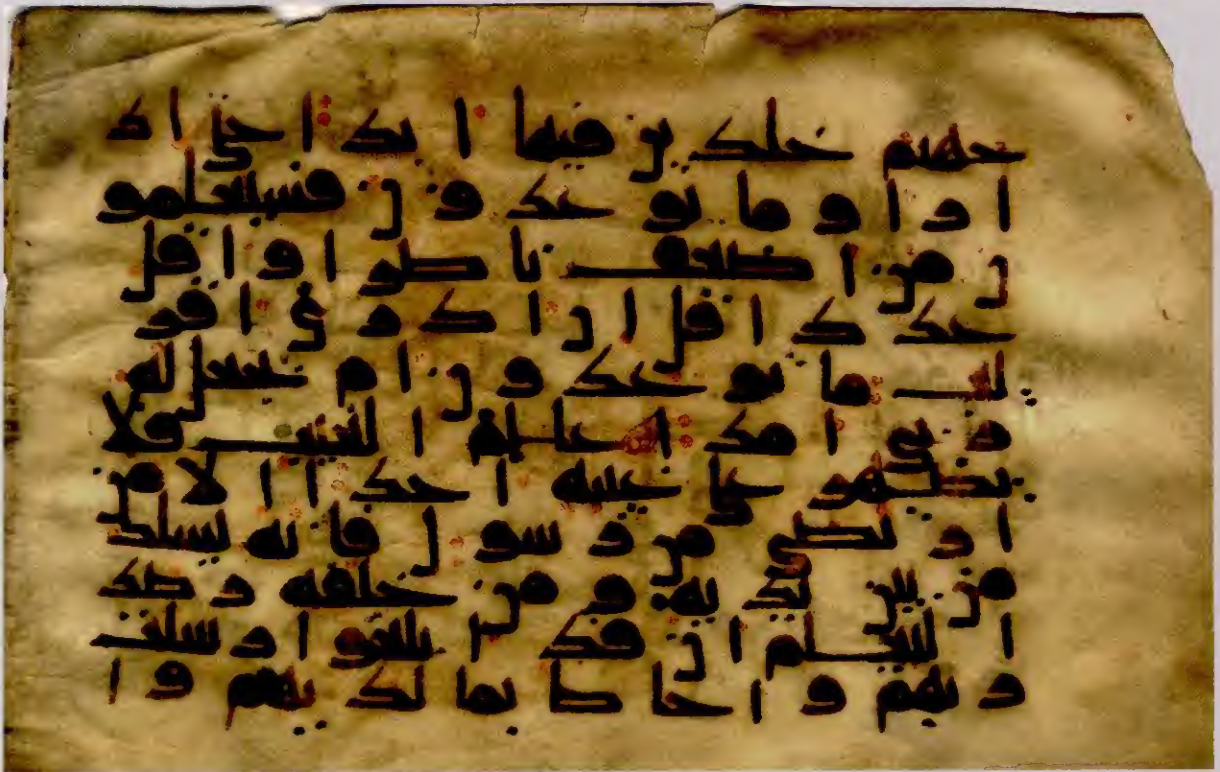 جهنم خلدين فيها ابدا حتى اذ
ا راو ما يوعدون فسيعلمو
ن من اضعف ناصرا واقل
عددا قل ان ادري اقر
يب ما توعدون ام يجعل له
ربي امدا علم الغيب فلا
يظهر على غيبه احدا الا من
ارتضى من رسول فانه يسلك
من بين يديه ومن خلفه رصد
ا ليعلم ان قد ابلغوا رسلت
ربهم واحاط بما لديهم وا